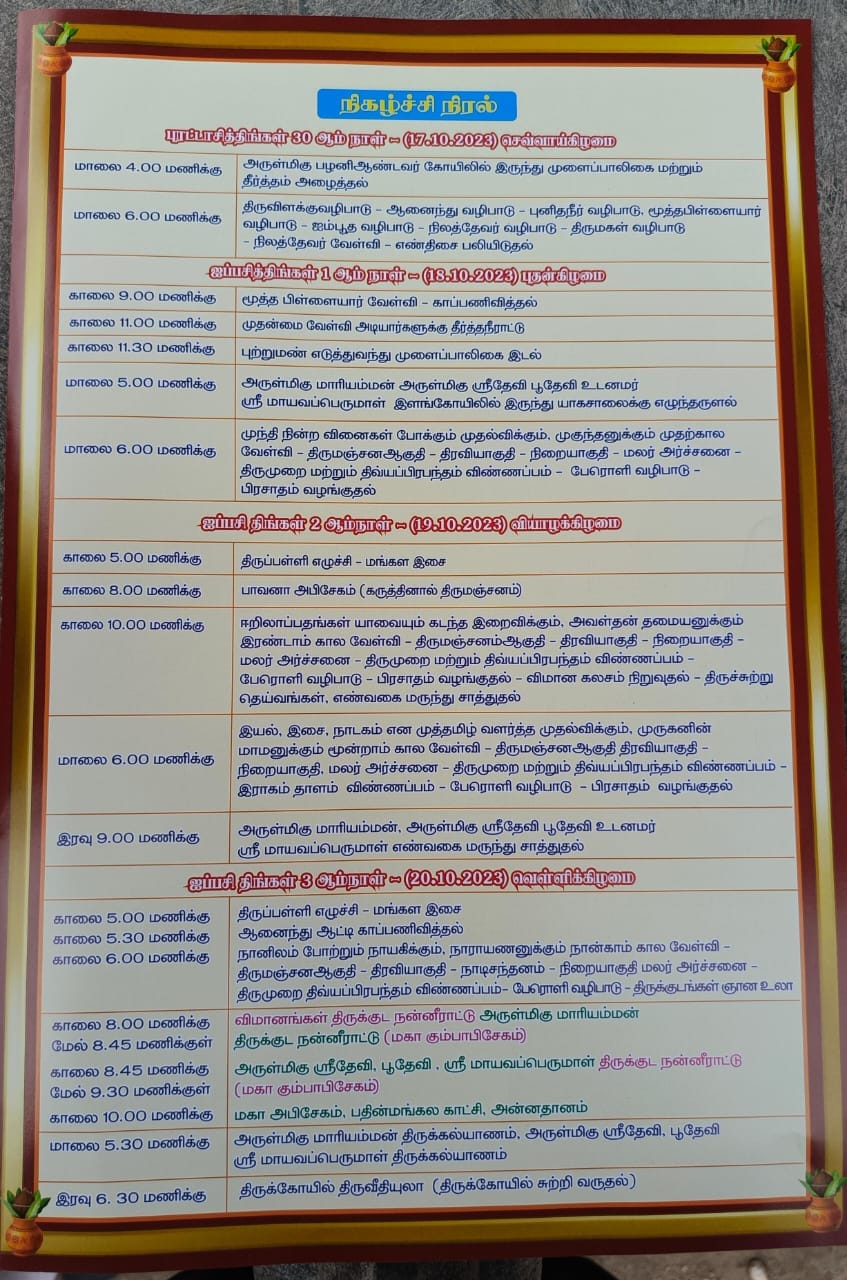 நிகழ்ச்சி நிரல்
புரட்டாசித்திங்கள் 30 ஆம் நாள் - (17.10.2023) செவ்வாய்கிழமை
மாலை 4.00 மணிக்கு
அருள்மிகு பழனிஆண்டவர் கோயிலில் இருந்து முளைப்பாலிகை மற்றும்
தீர்த்தம் அழைத்தல்
மாலை 6.00 மணிக்கு
திருவிளக்குவழிபாடு - ஆனைந்து வழிபாடு - புனிதநீர் வழிபாடு, மூத்தபிள்ளையார்
வழிபாடு - ஐம்பூத வழிபாடு - நிலத்தேவர் வழிபாடு - திருமகள் வழிபாடு
- நிலத்தேவர் வேள்வி - எண்திசை பலியிடுதல்
ஐப்பசித்திங்கள் 1 ஆம் நாள் - (18.10.2023) புதன்கிழமை
காலை 9.00 மணிக்கு
மூத்த பிள்ளையார் வேள்வி - காப்பணிவித்தல்
காலை 11.00 மணிக்கு
முதன்மை வேள்வி அடியார்களுக்கு தீர்த்தநீராட்டு
காலை 11.30 மணிக்கு
புற்றுமண் எடுத்துவந்து முளைப்பாலிகை இடல்
மாலை 5.00 மணிக்கு
அருள்மிகு மாரியம்மன் அருள்மிகு ஸ்ரீதேவி பூதேவி உடனமர்
ஸ்ரீ மாயவப்பெருமாள் இளங்கோயிலில் இருந்து யாகசாலைக்கு எழுந்தருளல்
மாலை 6.00 மணிக்கு
முந்தி நின்ற வினைகள் போக்கும் முதல்விக்கும், முகுந்தனுக்கும் முதற்கால
வேள்வி - திருமஞ்சனஆகுதி - திரவியாகுதி - நிறையாகுதி - மலர் அர்ச்சனை -
திருமுறை மற்றும் திவ்யப்பிரபந்தம் விண்ணப்பம் - பேரொளி வழிபாடு -
பிரசாதம் வழங்குதல்
ஐப்பசி திங்கள் 2 ஆம்நாள் - (19.10.2023) வியாழக்கிழமை
காலை 5.00 மணிக்கு
திருப்பள்ளி எழுச்சி - மங்கள இசை
காலை 8.00 மணிக்கு
பாவனா அபிசேகம் (கருத்தினால் திருமஞ்சனம்)
காலை 10.00 மணிக்கு
ஈறிலாப்பதங்கள் யாவையும் கடந்த இறைவிக்கும், அவள்தன் தமையனுக்கும்
இரண்டாம் கால வேள்வி - திருமஞ்சனம்ஆகுதி - திரவியாகுதி - நிறையாகுதி -
மலர் அர்ச்சனை - திருமுறை மற்றும் திவ்யப்பிரபந்தம் விண்ணப்பம் -
பேரொளி வழிபாடு - பிரசாதம் வழங்குதல் - விமான கலசம் நிறுவுதல் - திருச்சுற்று
தெய்வங்கள், எண்வகை மருந்து சாத்துதல்
மாலை 6.00 மணிக்கு
இயல், இசை, நாடகம் என முத்தமிழ் வளர்த்த முதல்விக்கும், முருகனின்
மாமனுக்கும் மூன்றாம் கால வேள்வி - திருமஞ்சனஆகுதி திரவியாகுதி -
நிறையாகுதி, மலர் அர்ச்சனை - திருமுறை மற்றும் திவ்யப்பிரபந்தம் விண்ணப்பம் -
இராகம் தாளம் விண்ணப்பம் - பேரொளி வழிபாடு - பிரசாதம் வழங்குதல்
இரவு 9.00 மணிக்கு
அருள்மிகு மாரியம்மன், அருள்மிகு ஸ்ரீதேவி பூதேவி உடனமர்
ஸ்ரீ மாயவப்பெருமாள் எண்வகை மருந்து சாத்துதல்
ஐப்பசி திங்கள் 3 ஆம்நாள் - (20.10.2023) வெள்ளிக்கிழமை
காலை 5.00 மணிக்கு
திருப்பள்ளி எழுச்சி - மங்கள இசை
காலை 5.30 மணிக்கு
ஆனைந்து ஆட்டி காப்பணிவித்தல்
காலை 6.00 மணிக்கு
நானிலம் போற்றும் நாயகிக்கும், நாராயணனுக்கும் நான்காம் கால வேள்வி -
திருமஞ்சனஆகுதி - திரவியாகுதி - நாடிசந்தனம் - நிறையாகுதி மலர் அர்ச்சனை -
திருமுறை திவ்யப்பிரபந்தம் விண்ணப்பம்- பேரொளி வழிபாடு - திருக்குடங்கள் ஞான உலா
காலை 8.00 மணிக்கு
மேல் 8.45 மணிக்குள்
விமானங்கள் திருக்குட நன்னீராட்டு அருள்மிகு மாரியம்மன்
திருக்குட நன்னீராட்டு (மகா கும்பாபிசேகம்)
காலை 8.45 மணிக்கு
மேல் 9.30 மணிக்குள்
அருள்மிகு ஸ்ரீதேவி, பூதேவி , ஸ்ரீ மாயவப்பெருமாள் திருக்குட நன்னீராட்டு
(மகா கும்பாபிசேகம்)
காலை 10.00 மணிக்கு
மகா அபிசேகம், பதின்மங்கல காட்சி, அன்னதானம்
மாலை 5.30 மணிக்கு
அருள்மிகு மாரியம்மன் திருக்கல்யாணம், அருள்மிகு ஸ்ரீதேவி, பூதேவி
ஸ்ரீ மாயவப்பெருமாள் திருக்கல்யாணம்
இரவு 6. 30 மணிக்கு
திருக்கோயில் திருவீதியுலா (திருக்கோயில் சுற்றி வருதல்)